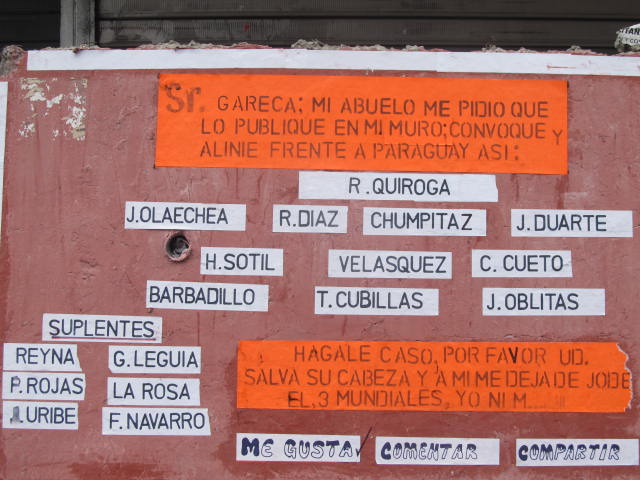 Sr. GARECA: MI ABUELO ME PIDIO QUE
LO PUBLIQUE EN MI MURO; CONVOQUE Y
ALINIE FRENTE A PARAGUAY ASI:
R. QUIROGA
J. OLAECHEA R. DIAZ CHUMPITAZ J. DUARTE
H. SOTIL VELASQUEZ C. CUETO
BARBADILLO T. CUBILLAS J. OBLITAS
SUPLENTES
REYNA G. LEGUIA
P. ROJAS LA ROSA
J. URIBE F. NAVARRO
HAGALE CASO, POR FAVOR UD.
SALVA SU CABEZA Y A MI ME DEJA DE JODE
EL, 3 MUNDIALES, YO NI M....
ME GUSTA COMENTAR COMPARTIR